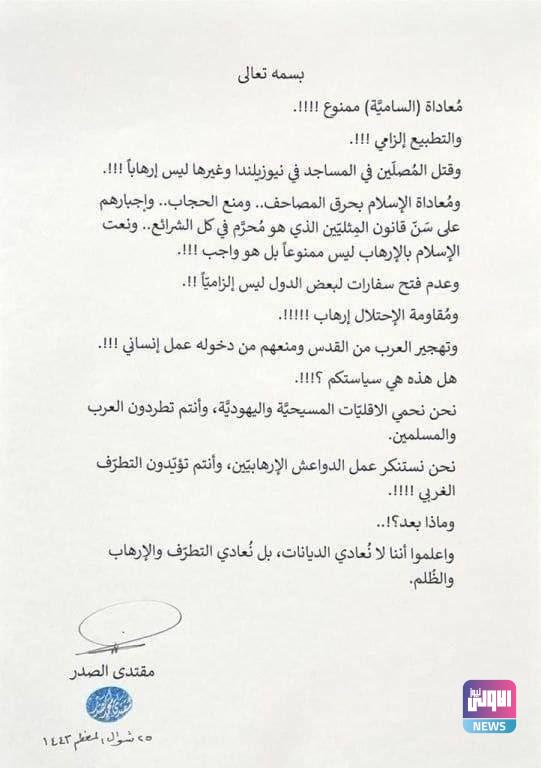 بسمه تعالى
مُعاداة (الساميَّة) ممنوع !!!!.
والتطبيع إلزامي !!!.
وقتل المُصلّين في المساجد في نيوزيلندا وغيرها ليس إرهاباً !!!.
ومُعاداة الإسلام بحرق المصاحف.. ومنع الحجاب.. وإجبارهم
على سَنّ قانون المِثليّين الذي هو مُحرَّم في كل الشرائع.. ونعت
الإسلام بالإرهاب ليس ممنوعاً بل هو واجب !!!.
وعدم فتح سفارات لبعض الدول ليس إلزاميّاً !!.
ومُقاومة الإحتلال إرهاب !!!!!.
وتهجير العرب من القدس ومنعهم من دخوله عمل إنساني !!!.
هل هذه هي سياستكم ؟!!!.
نحن نحمي الاقليّات المسيحيَّة واليهوديَّة، وأنتم تطردون العرب
والمسلمين.
نحن نستنكر عمل الدواعش الإرهابيّين، وأنتم تؤيّدون التطرّف
الغربي !!!!.
وماذا بعد؟!..
واعلموا أننا لا نُعادي الديانات، بل نُعادي التطرّف والإرهاب
والظُلم.
مقتدى الصدر
٢٥ شوال المعظم ١٤٤٣
الاولى نيوز
NEWS